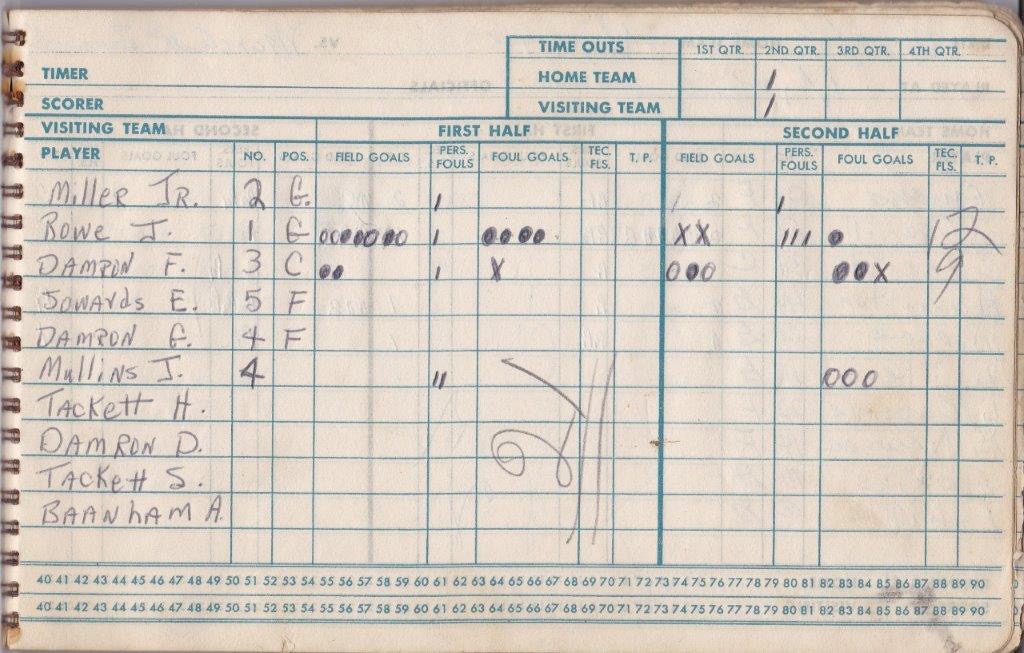 TIME OUTS 1ST QTR. 2ND QTR. 3RD QTR. 4TH QTR.
TIMER
HOME TEAM /
SCORER
VISITING TEAM /
VISITING TEAM FIRST HALF SECOND HALF
PLAYER NO. POS. FIELD GOALS PERS. FOULS FOUL GOALS TEC. FLS. T. P. FIELD GOALS PERS. FOULS FOUL GOALS TEC. FLS. T. P.
Miller JR. 2 G. / / /
Rowe J. 1 G / XX /// 12
DAMRON F. 3 C / X X 9
Sowards E. 5 F
DAMRON G. 4 F
Mullins J. 4 // OOO
TACKett H.
DAMRON D.
TACKett S.
40 41 42 43 44 45 46 47 48 49 50 51 52 53 54 55 56 57 58 59 60 61 62 63 64 65 66 67 68 69 70 71 72 73 74 75 76 77 78 79 80 81 82 83 84 85 86 87 88 89 90
40 41 42 43 44 45 46 47 48 49 50 51 52 53 54 55 56 57 58 59 60 61 62 63 64 65 66 67 68 69 70 71 72 73 74 75 76 77 78 79 80 81 82 83 84 85 86 87 88 89 90